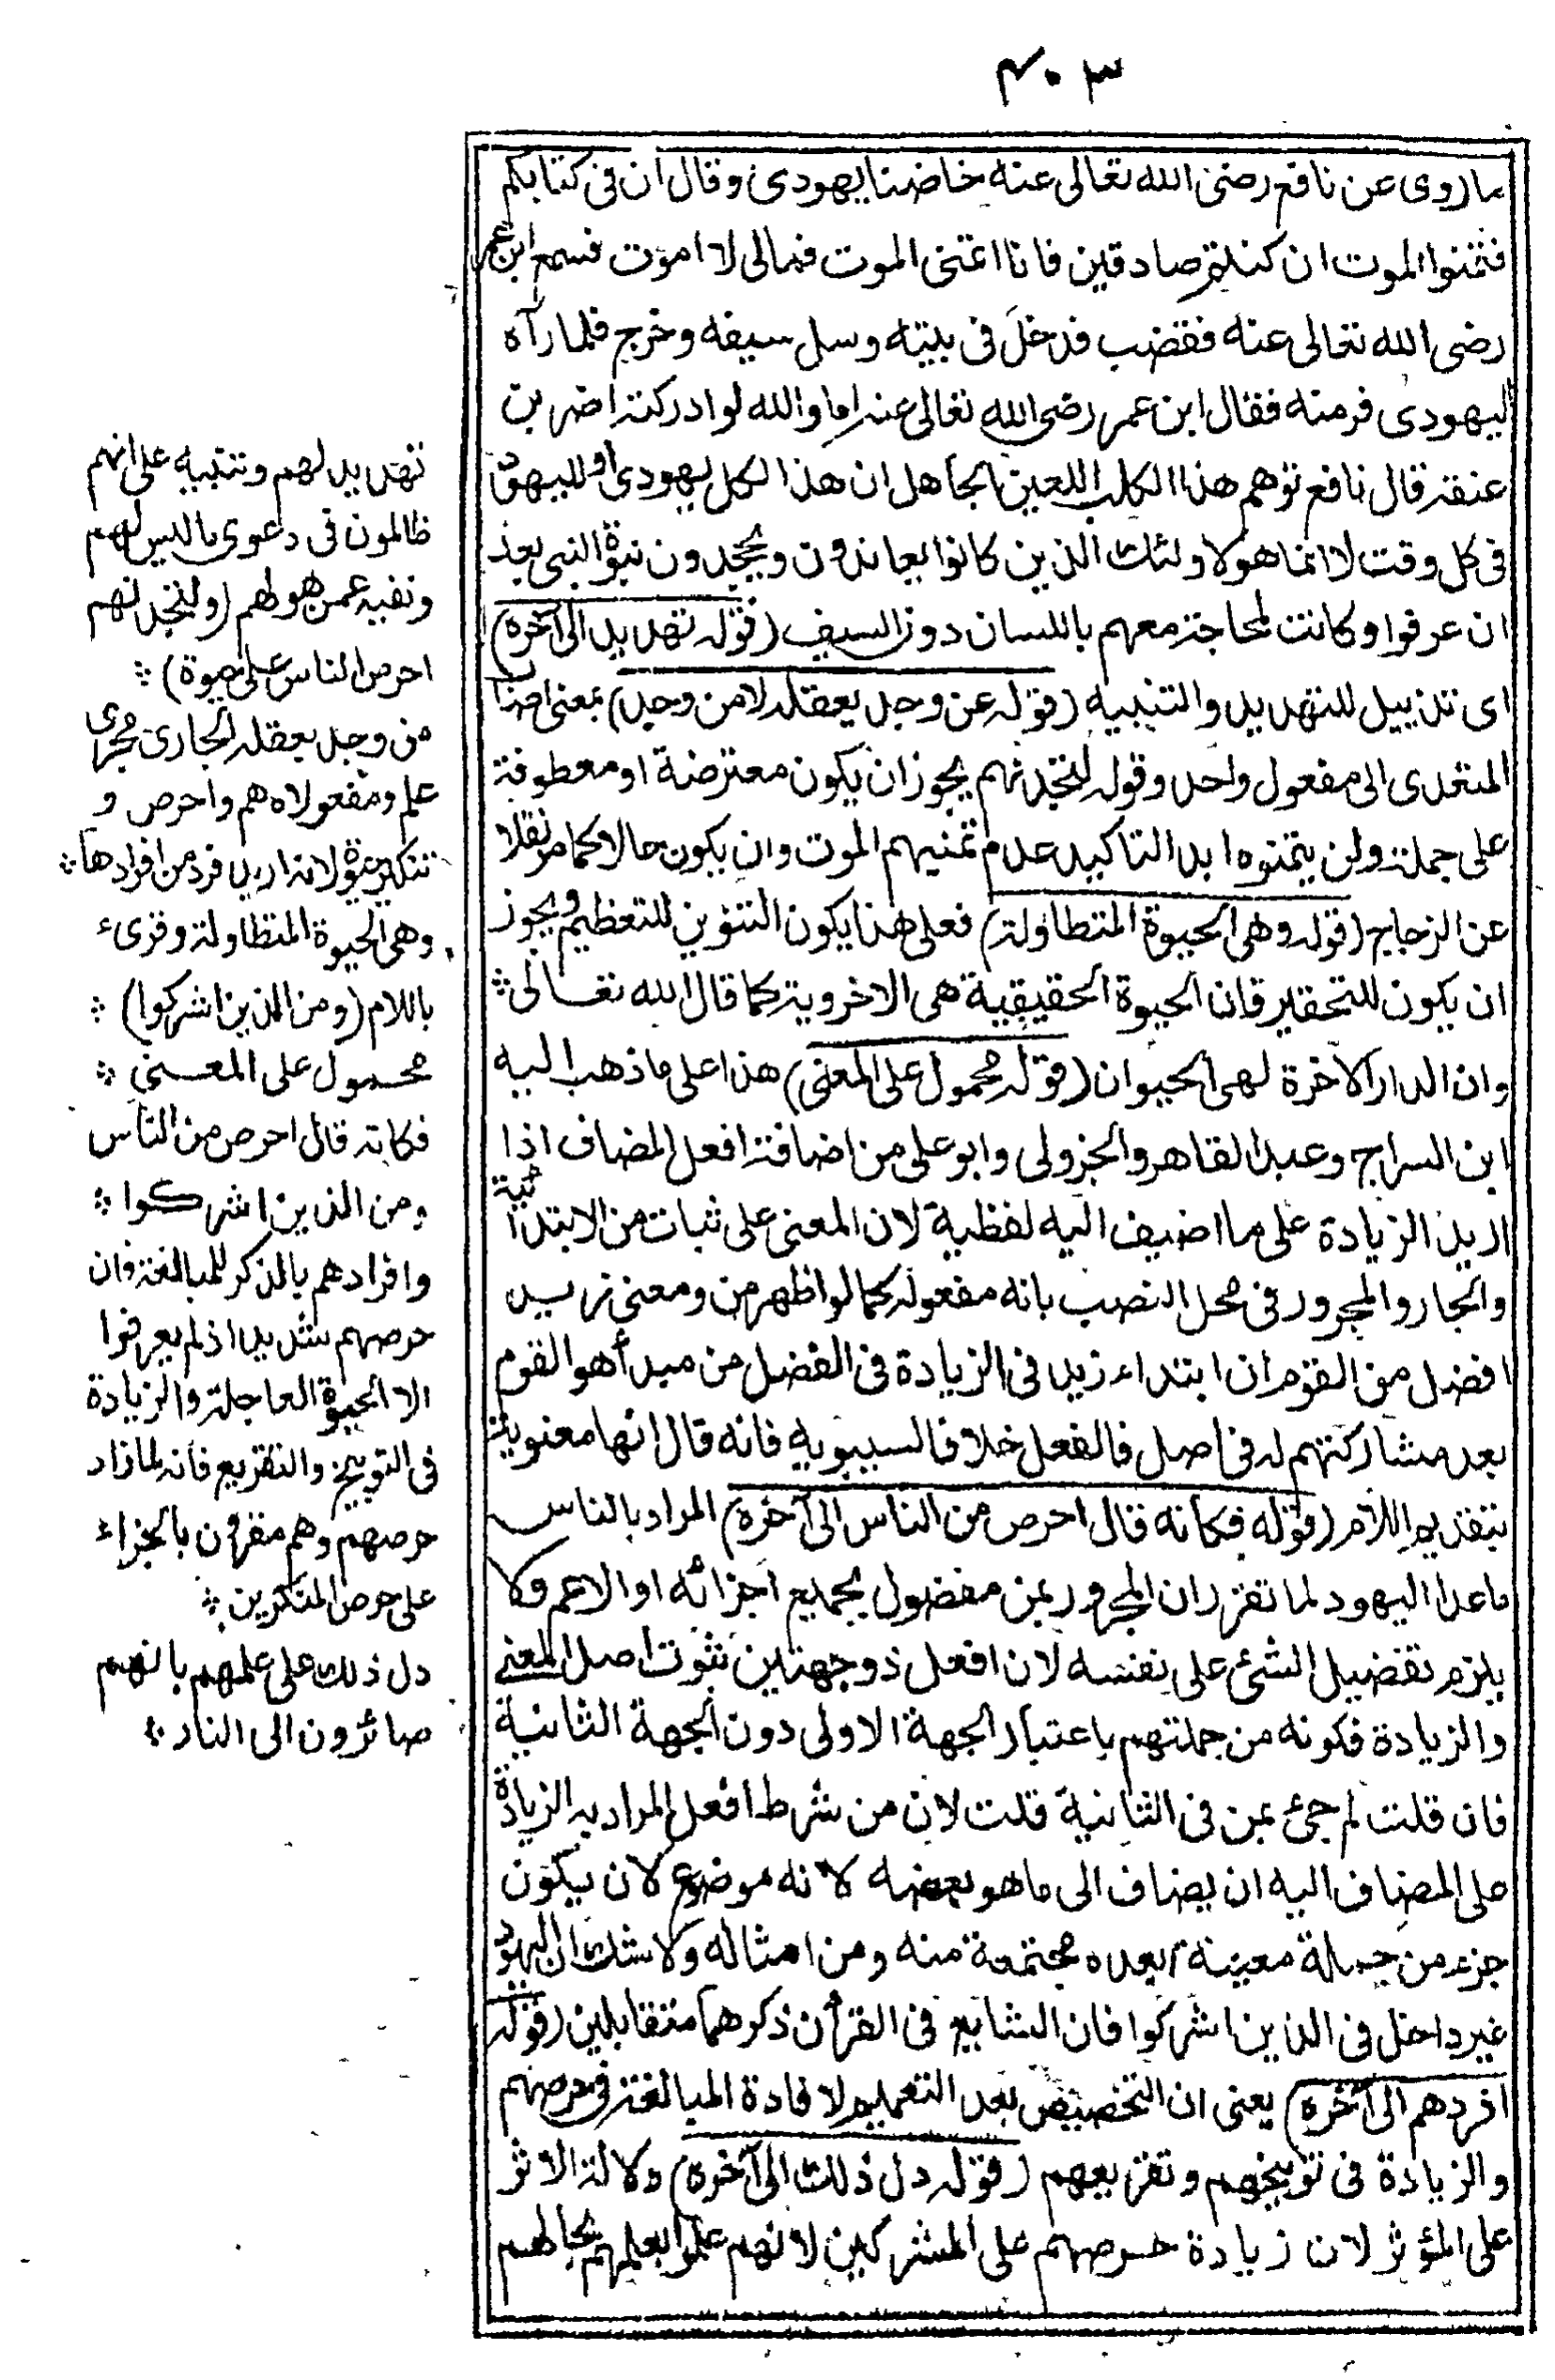 ٤٠٣
ما روى عن نافع رضى الله تعالى عنه خاضنا يهودى وقال ان فى كتابكم
فتمنوا الموت ان كنتم صادقين فانا اتمنى الموت فمالى لا اموت فسمع ابن عمر
رضى الله تعالى عنه فغضب فدخل فى بيته وسل سيفه وخرج فلما رآه
اليهودى فر منه فقال ابن عمر رضى الله تعالى عنه اما والله لو ادركته اضربن
عنقه قال نافع توهم هذا الكلب اللعين الجاهل ان هذا لكل يهودى او لليهود
فى كل وقت لا انما هو لاولئك الذين كانوا يعاندون ويجحدون نبوة النبى بعد
ان عرفوا وكانت المحاجة معهم باللسان دون السيف (قوله تهديد الى آخره)
اى تذييل للتهديد والتنبيه (قوله عن وجد بعقله لا من وجد) بمعنى اصاب
المتعدى الى مفعول واحد وقوله لتجدنهم يجوز ان يكون معترضة او معطوفة
على جملة ولن يتمنوه ابدا لتاكيد عدم تمنيهم الموت وان يكون حالا كما مر نقلا
عن الزجاج (قوله وهى الحيوة المتطاولة) فعلى هذا يكون التنوين للتعظيم ويجوز
ان يكون للتحقير فان الحيوة الحقيقية هى الاخروية كما قال الله تعالى
وان الدار الاخرة لهى الحيوان (قوله محمول على المعنى) هذا على ما ذهب اليه
ابن السراج وعبد القاهر والجزولى وابو على من اضافة افعل المضاف اذا
اريد الزيادة على ما اضيف اليه لفظية لان المعنى على ثبات من الابتدائية
والجار والمجرور فى محل النصب بانه مفعوله كما لو اظهر من ومعنى زيد
افضل من القوم ان ابتداء زيد فى الزيادة فى الفضل من مبدأ هو القوم
بعد مشاركتهم له فى اصل فالفعل خلافا لسيبويه فانه قال انها معنوية
بتقدير اللام (قوله فكانه قال احرص من الناس الى آخره) المراد بالناس
ما عدا اليهود لما تقرر ان المجرور بمن مفضول بجميع اجزائه او الاعم ولا
يلزم تفضيل الشئ على نفسه لان افعل ذو جهتين ثبوت اصل المعنى
والزيادة فكونه من جملتهم باعتبار الجهة الاولى دون الجهة الثانية
فان قلت لم جئ بمن فى الثانية قلت لان من شرط افعل المراد به الزيادة
على المضاف اليه ان يضاف الى ما هو بعضه لانه موضوع لان يكون
جزء من جملة معينة بعده مجتمعة منه ومن امثاله ولا شك ان اليهود
غير داخل فى الذين اشركوا فان الشايع فى القرآن ذكرهما متقابلين (قوله
افردهم الى آخره) يعنى ان التخصيص بعد التعميم لافادة المبالغة فى حرصهم
والزيادة فى توبيخهم وتقريعهم (قوله دل ذلك الى آخره) دلالة الاثر
على المؤثر لان زيادة حرصهم على المشركين لانهم علموا بعلمهم بحالهم
تهديد لهم وتنبيه على انهم
ظالمون فى دعوى ما ليس لهم
ونفيه عمن هو لهم (ولتجدنهم
احرص الناس على حيوة)
من وجد بعقله الجارى مجرى
علم ومفعولاه هم واحرص و
تنكير حيوة لانه اريد فرد من افرادها
وهى الحيوة المتطاولة وقرىء
باللام (ومن الذين اشركوا)
محمول على المعنى
فكانه قال احرص من الناس
ومن الذين اشركوا
وافرادهم بالذكر للمبالغة فان
حرصهم شديد اذ لم يعرفوا
الا الحيوة العاجلة والزيادة
فى التوبيخ والتقريع فانه لما زاد
حرصهم وهم مقرون بالجزاء
على حرص المنكرين
دل ذلك على علمهم بانهم
صائرون الى النار